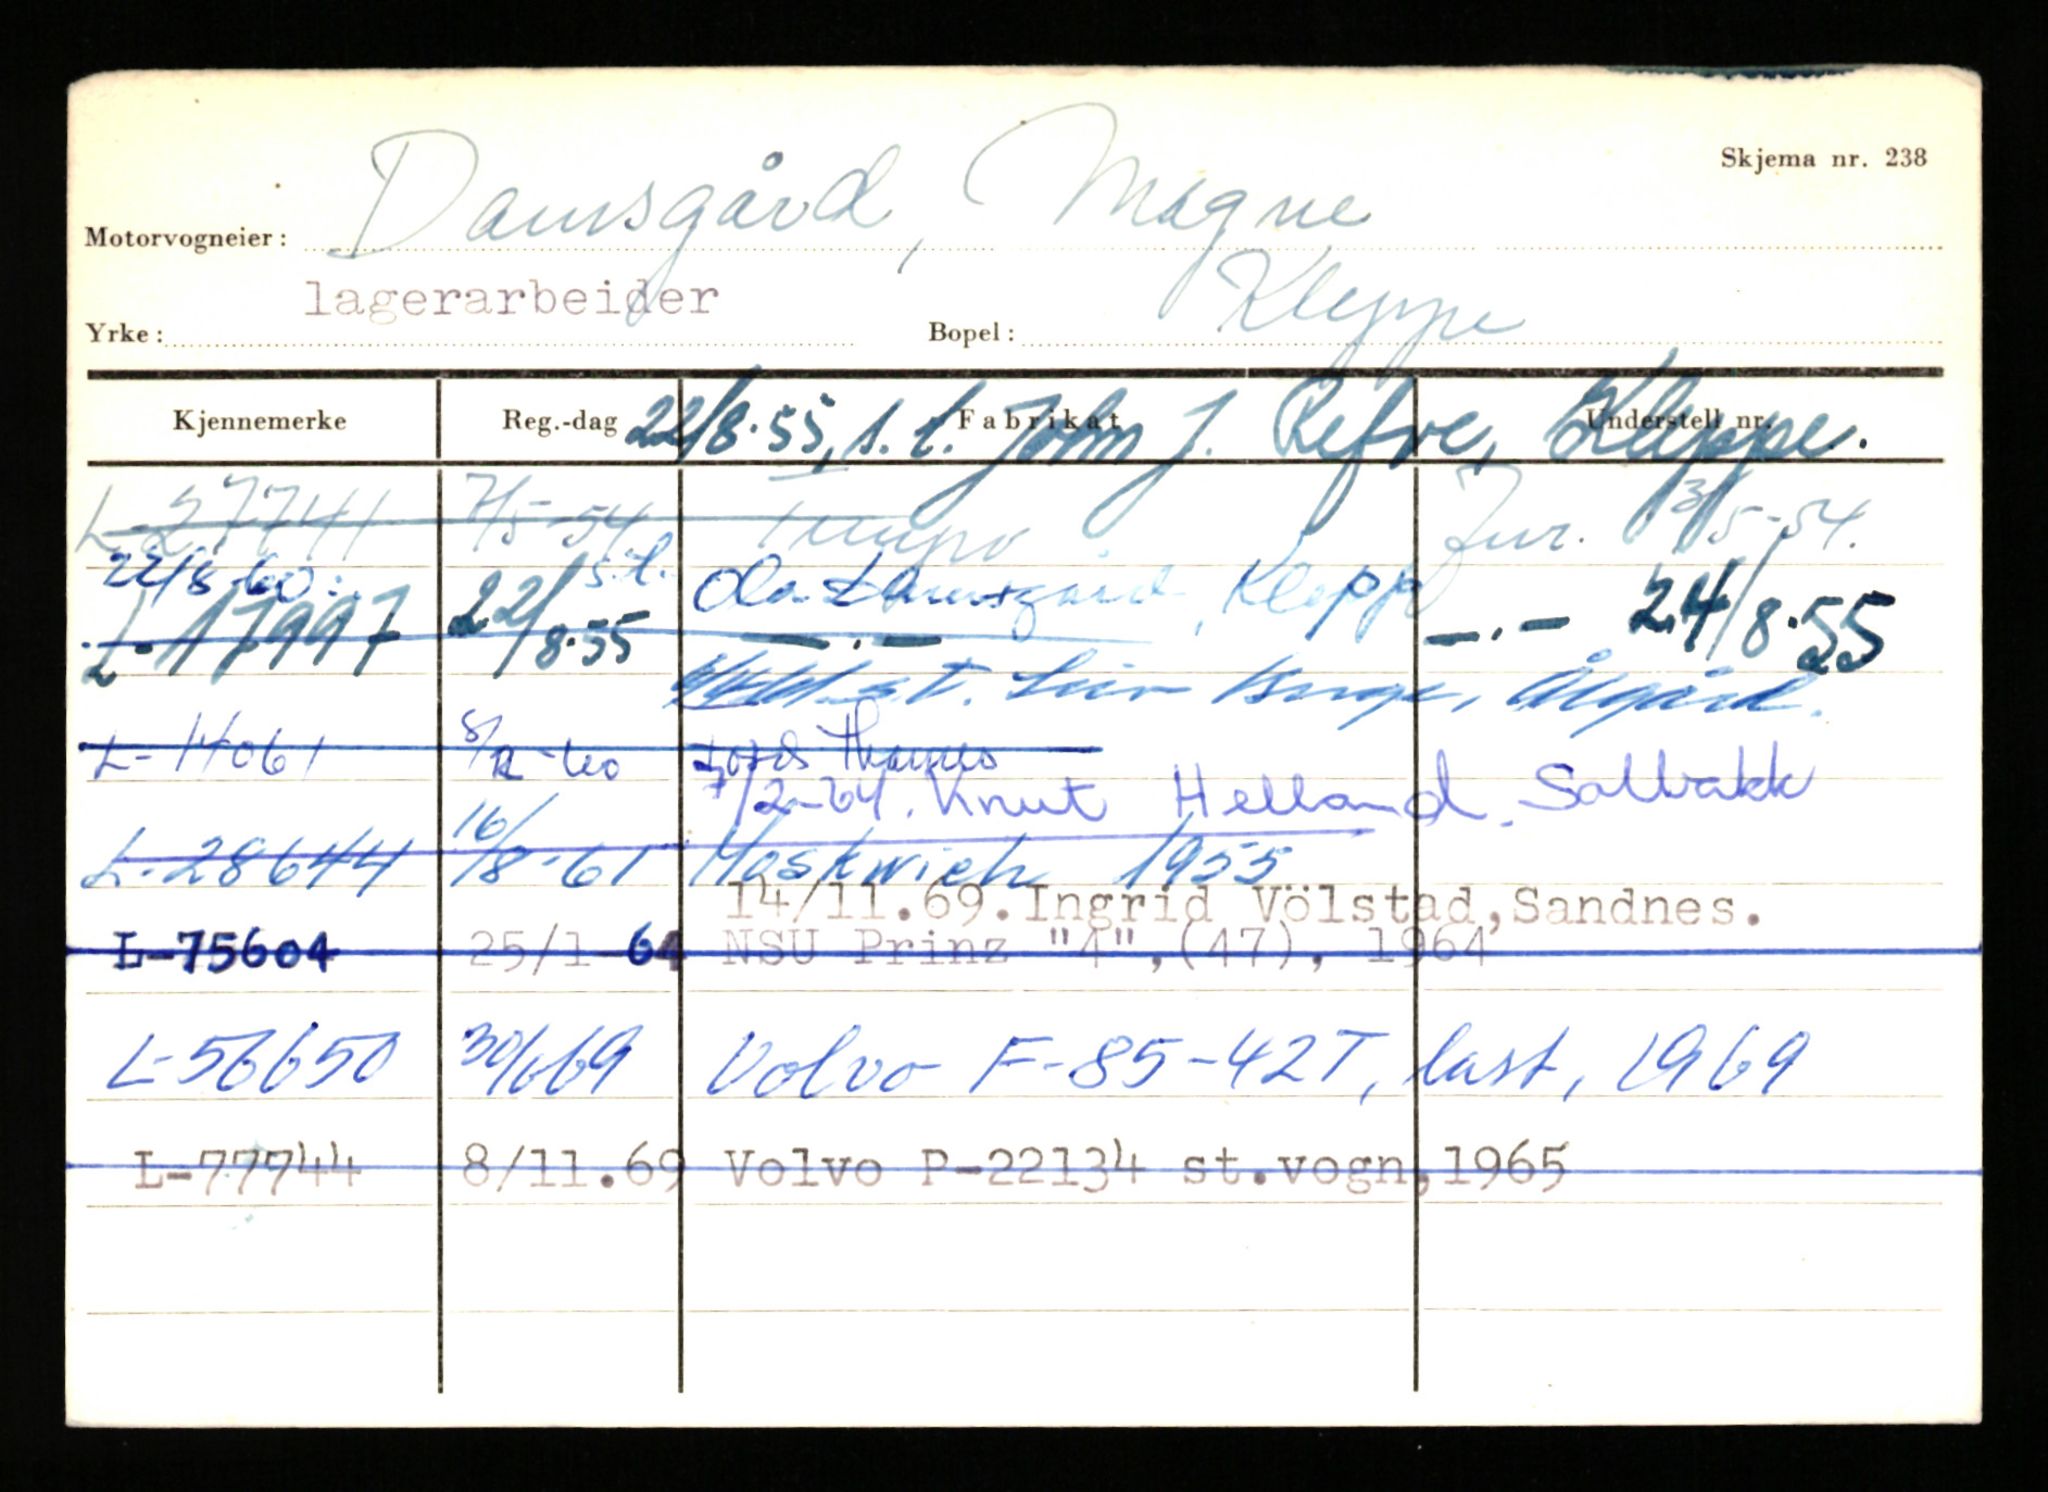 Skjema nr. 238
Motorvogneier: Damsgård, Magne
Yrke: lagerarbeider Bopel: Kleppe
Kjennemerke Reg.-dag Fabrikat Understell nr.
22/8.55, s.t. John J. Refve, Kleppe.
L-27741 7/5-54 Tempo Fur. 3/5-54.
22/8-60: s.t. Ola Damsgård, Kleppe
L-17997 22/8.55 — . — — . — 24/8.55
s.t. Ålgård.
L-14061 8/12-60 Thames
7/2-64. Knut Helland, Solbakk
L-28644 16/8-61 Moskwich 1955
14/11.69. Ingrid Völstad, Sandnes.
L-75604 25/1-64 NSU Prinz "4", (47), 1964
L-56650 30/6 69 Volvo F-85-42T, last, 1969
L-77744 8/11.69 Volvo P-22134 st.vogn, 1965